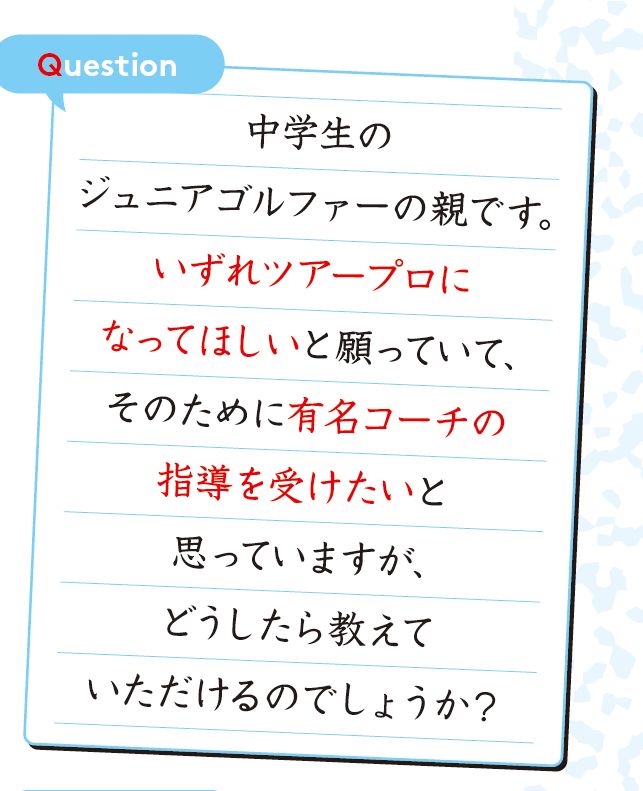 Question
中学生の
ジュニアゴルファーの親です。
いずれツアープロに
なってほしいと願っていて、
そのために有名コーチの
指導を受けたいと
思っていますが、
どうしたら教えて
いただけるのでしょうか?